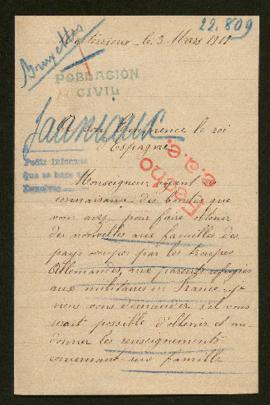 22.809
Bruxelles
le 3 Mars 1917
POBLACIÓN
CIVIL
Jannuac
A Son Eminence le roi
d'Espagne
Pedir informe
que se haga
Fecho
Monseigneur ayant
connaissance des bontés que
vous avez pour faire obtenir
des nouvelles aux familles des
pays occupés par les troupes
Allemandes, aux parents réfugiés
aux militaires en France. Je
viens vous demander s'il vous
serait possible d'obtenir et me
donner les renseignements
concernant ma famille